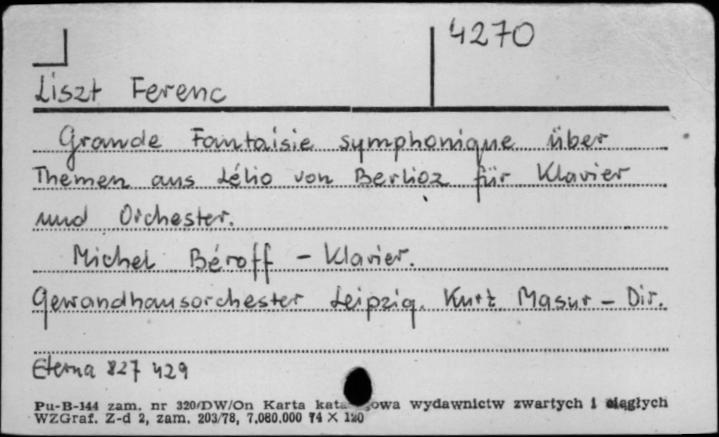 4270
Liszt Ferenc
Grande Fantaisie symphonique über
Themen aus Lélio von Berlioz für Klavier
und Orchester.
Michel Béroff - Klavier.
Gewandhausorchester Leipzig. Kurt Masur - Dir.
Eterna 827 429
Pu-B-144 zam. nr 320/DW/On Karta kata owa wydawnictw zwartych i ciągłych
WZGraf. Z-d 2, zam. 203/78, 7.080.000 74 X 120